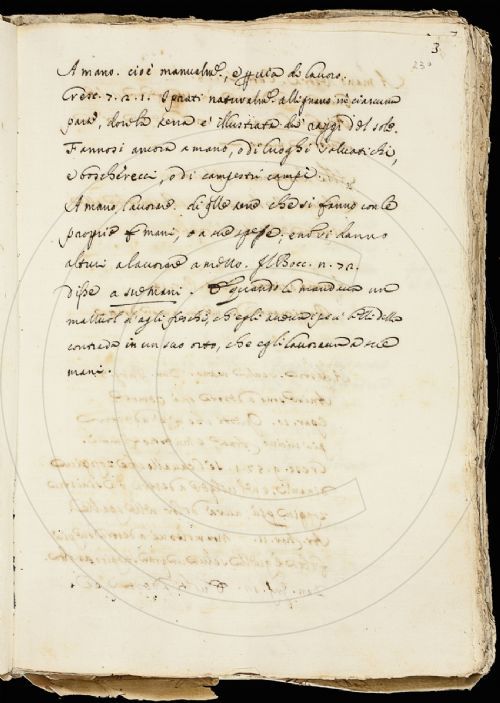 3
230
A mano. cioè manualm.e, e p via di lavoro.
Cresc. 7. 2. 1. I prati naturalm.e allignano in ciascuna
parte, dove la terra è illustrata da' raggi del sole.
Fannosi ancora a mano, o di luoghi salvatichi,
e boscherecci, o di campestri campi.
A mano, lavorare. di q̃lle terre che si fanno con le
proprie mani, o a sue spese, e nõ si danno
altrui a lavorare a mezzo. Il Bocc. n. 72.
disse a sue mani. quando le mandava un
mazzuol d'agli freschi, ch'egli aveva i più belli della
contrada in un suo orto, che egli lavorava a sue
mani.